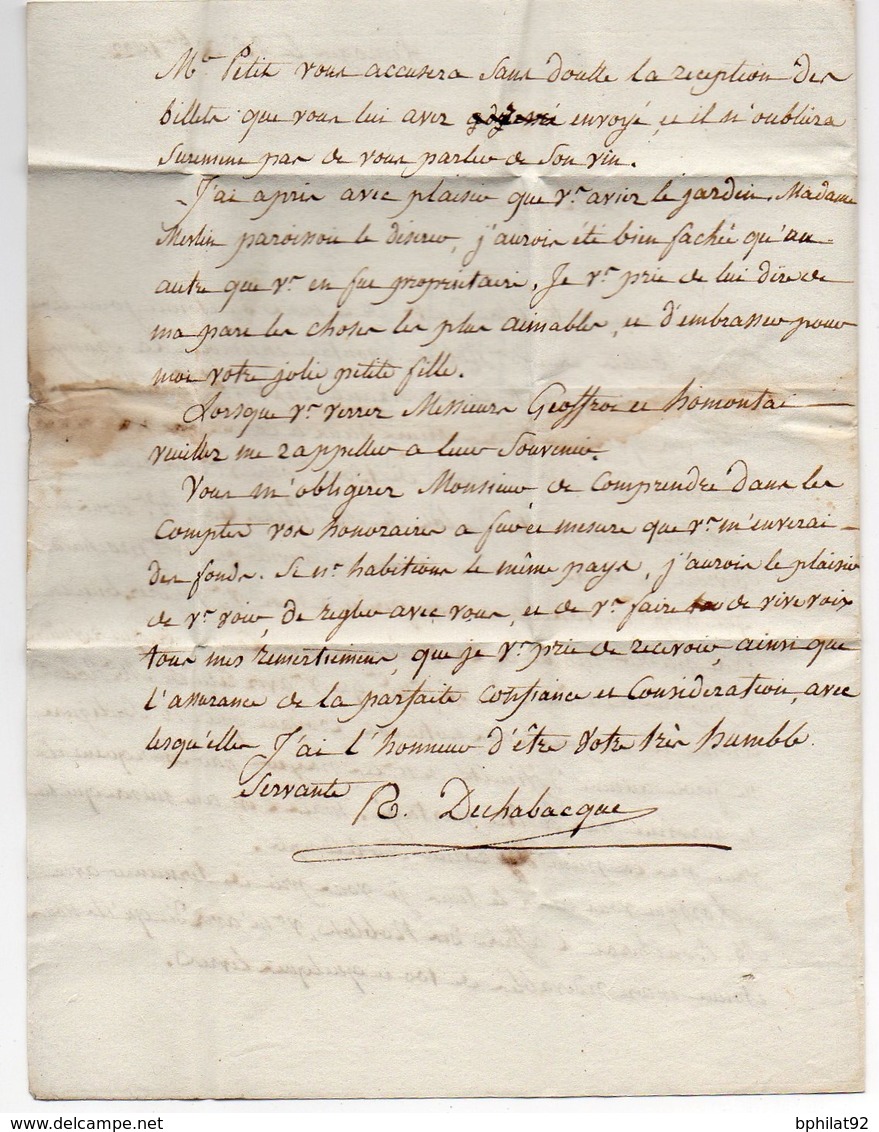 Mr Petit vous accusera sans doutte la reception des
billets que vous lui avez envoyé, et il n'oublira
surement pas de vous parler de son vin.
J'ai apris avec plaisir que vs aviez le jardin. Madame
Merlin paroissoit le désirer, j'aurois été bien fachée qu'un
autre que vs en fut proprietaire. Je vs prie de lui dire de
ma part les choses les plus aimables, et d'embrasser pour
moi votre jolie petite fille.
Lorsque vs verrez Messieurs Geoffroi et homontai
veuillez me rappeller a leur souvenir.
Vous m'obligerez Monsieur de comprendre dans les
comptes vos honoraires a fur et mesure que vs m'enverai
des fonds. Si ns habitions le même pays, j'aurois le plaisir
de vs voir, de regler avec vous, et de vs faire de vive voix
tous mes remertiemens, que je vs prie de recevoir, ainsi que
l'assurance de la parfaite confiance et Consideration, avec
lesqu'elles J'ai l'honneur d'être Votre très humble
Servante
R. Dechabacque
delcampe.net
bphilat92